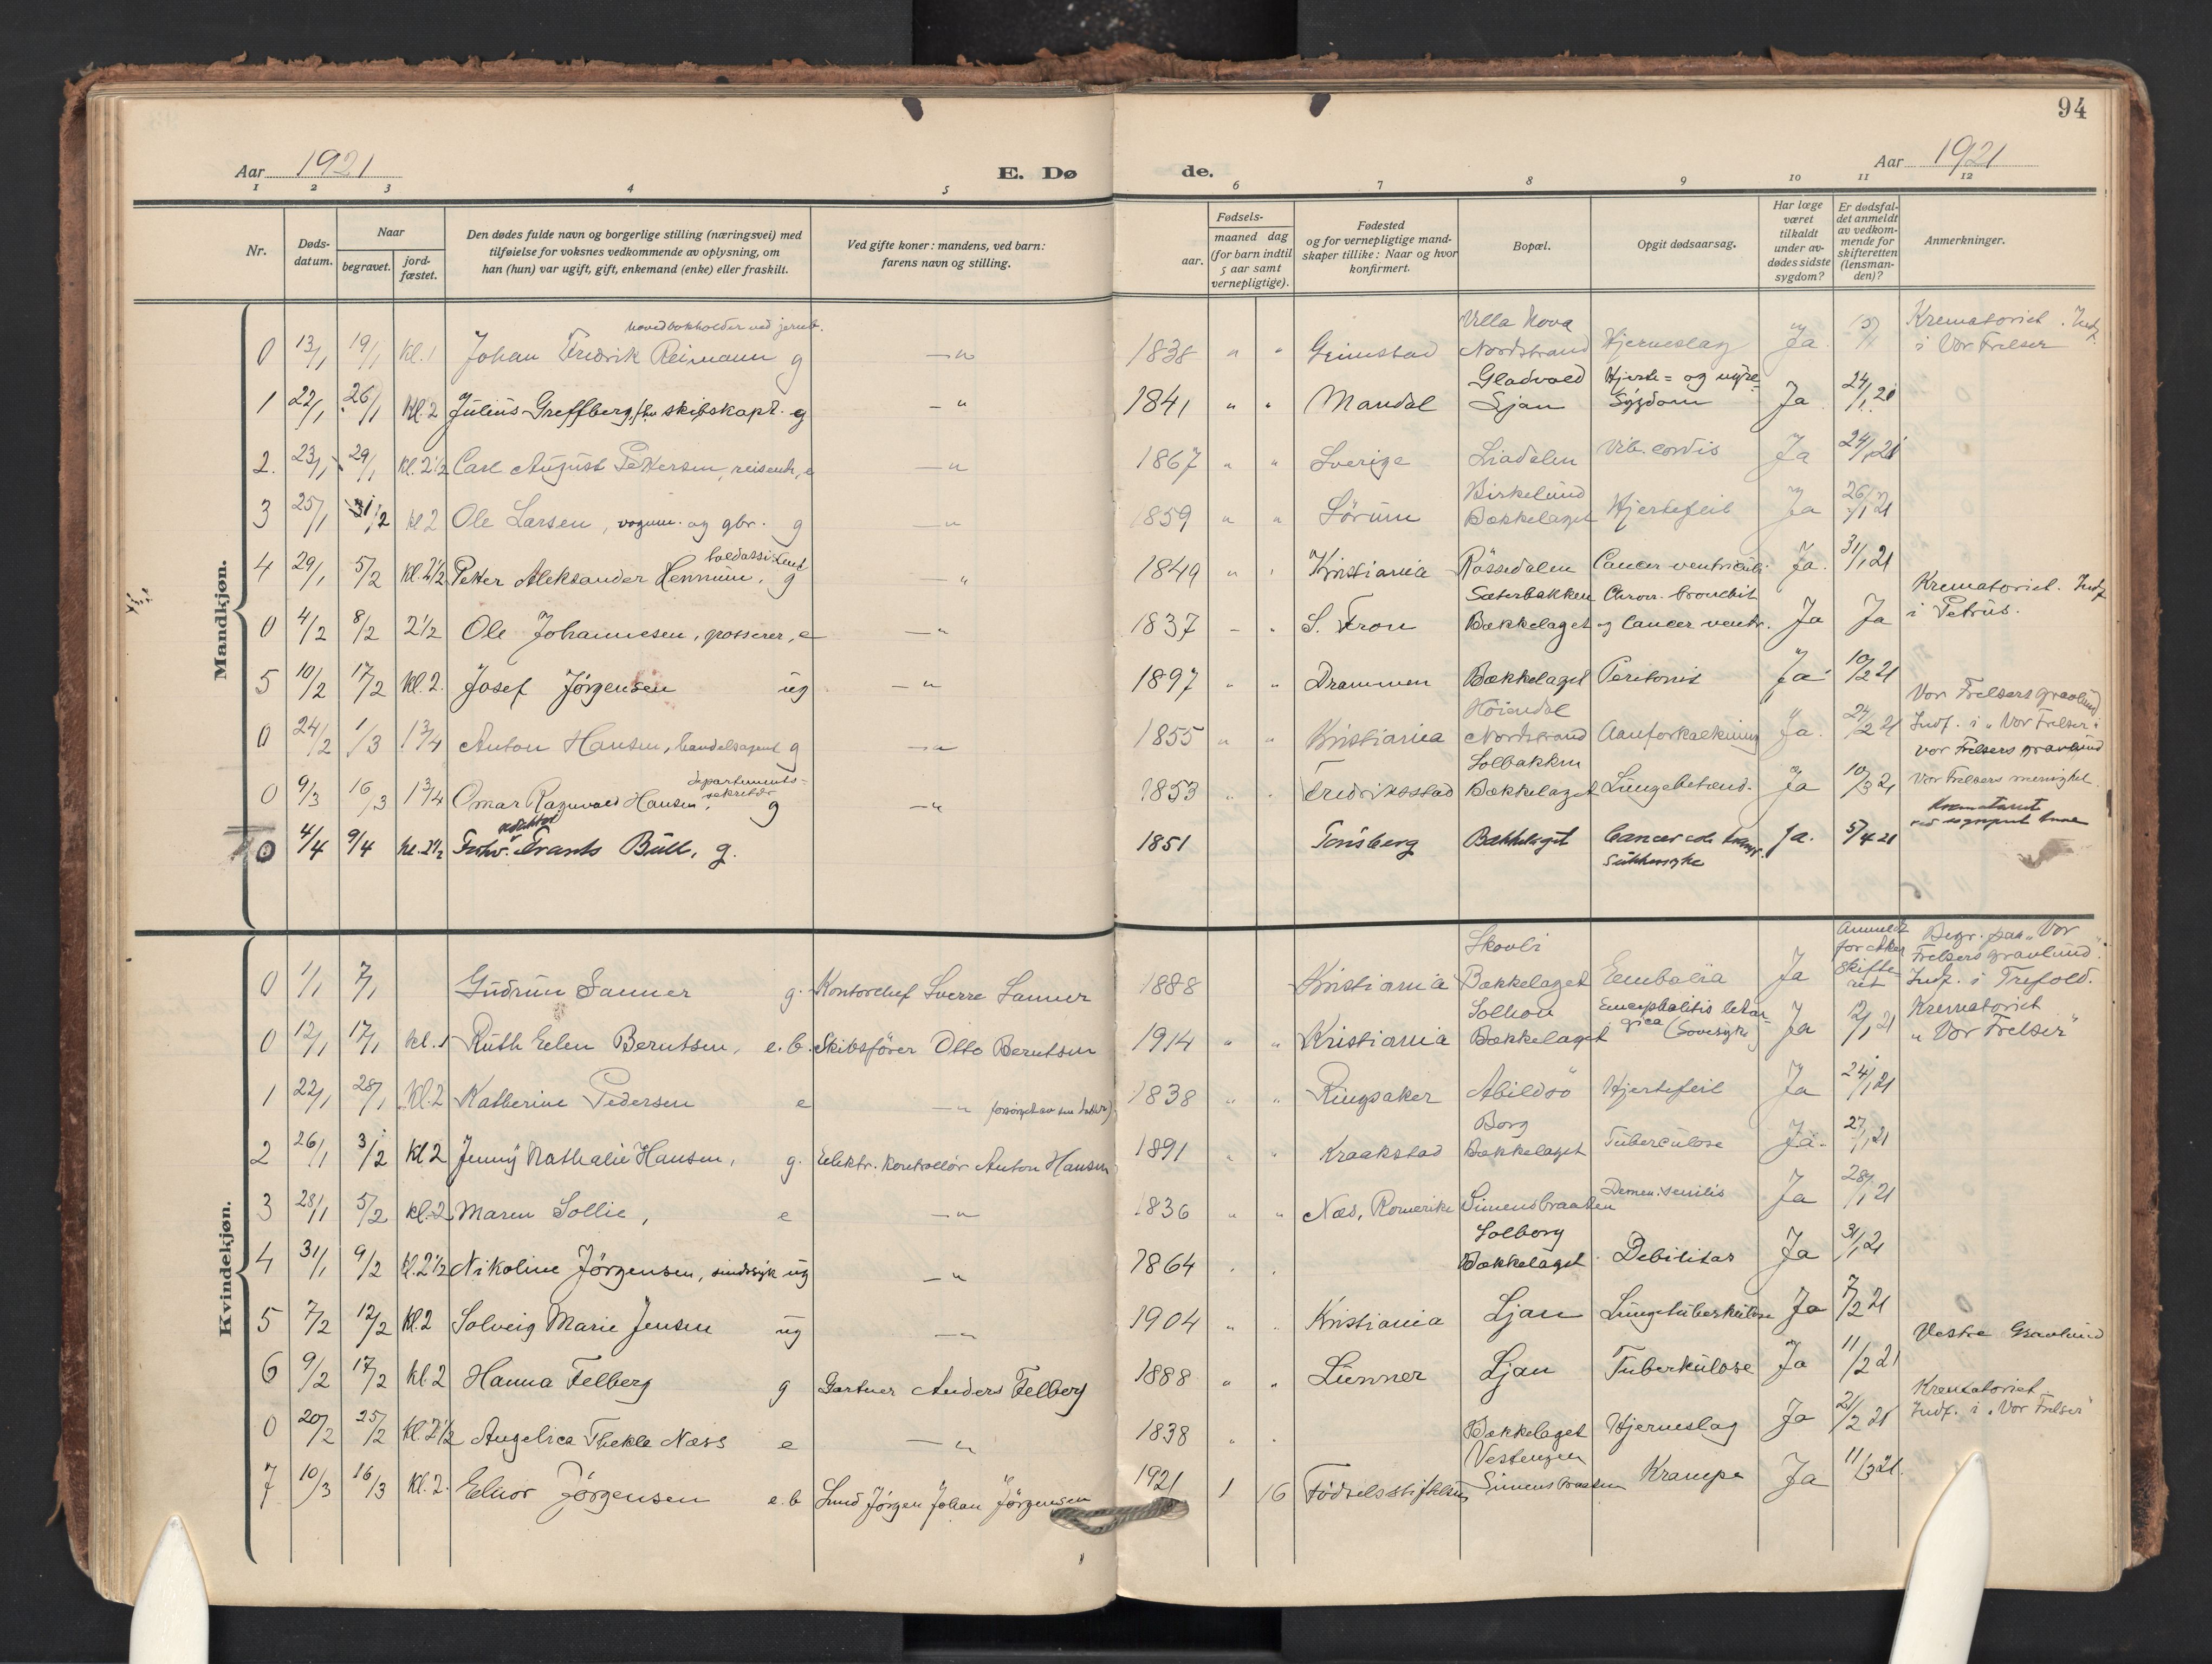 94
Aar 1921
E. Dø de.
Aar 1921
1 2 3 4 5 6 7 8 9 10 11 12
Nr.
Døds-datum.
Naar
begravet.
jord-fæstet.
Den dødes fulde navn og borgerlige stilling (næringsvei) med
tilføielse for voksnes vedkommende av oplysning, om
han (hun) var ugift, gift, enkemand (enke) eller fraskilt.
Ved gifte koner: mandens, ved barn:
farens navn og stilling.
Fødsels-
aar.
maaned dag
(for barn indtil
5 aar samt
vernepligtige).
Fødested
og for vernepligtige mand-
skaper tillike: Naar og hvor
konfirmert.
Bopæl.
Opgit dødsaarsag.
Har læge
været
tilkaldt
under av-
dødes sidste
sygdom?
Er dødsfal-
det anmeldt
av vedkom-
mende for
skifteretten
(lensman-
den)?
Anmerkninger.
Mandkjøn.
0 13/1 19/1 kl. 1 Johan Fredrik Reimann hovedbokholder ved jernb. g — " 1838 " " Grimstad Villa Nova Nordstrand Hjerneslag Ja Krematoriet. Indf. i Vor Frelser
1 22/1 26/1 kl. 2 Julius Greffberg, fhv skibskapt. g — " 1841 " " Mandal Gladvold Ljan Hjerte= og nyre- Sygdom Ja 24/1 21
2. 23/1 29/1 kl. 2½ Carl August Pettersen, reisende, e — " 1867 " " Sverige Liadalen Vit. cordis Ja 24/1 21
3 25/1 31/2 kl 2 Ole Larsen, vognm. og gbr. g — " 1859 " " Sörum Birkelund Bækkelaget Hjertefeil Ja 26/1 21
4 29/1 5/2 kl. 2½ Petter Aleksander Hennum, toldassistent g — " 1849 " " Kristiania Rössedalen Cancer ventriculi Ja. 31/1 21
0 4/2 8/2 2½ Ole Johannesen, grosserer, e — " 1837 – " S. Fron Sæterbakken Bækkelaget Chron. bronchit og Cancer ventr. Ja Ja Krematoriet. Indf i Petrus.
5 10/2 17/2 kl. 2. Josef Jörgensen ug — " 1897 " " Drammen Bækkelaget Peritonit Ja 10/2 21
0 24/2 1/3 1¾ Anton Hansen, handelsagent g — " 1855 " " Kristiania Höiendal Nordstrand Aareforkalkning Ja. 24/2 21 Vor Frelsers gravlund Indf. i "Vor Frelser"
0 9/3 16/3 1¾ Omar Ragnvald Hansen, departements=sekretær g — " 1853 " " Fredriksstad Solbakken Bækkelaget Lungebetænd. Ja 10/3 21 Vor Frelsers gravlund Vor Frelsers menighet.
0 4/4 9/4 kl. 2½ Fhv. redaktør Frants Bull, g. 1851 Tönsberg Bækkelaget Cancer Sukkersyke Ja. 5/4 21 Krematoriet
Kvindekjøn.
0 1/1 7/1 Gudrun Sanner g. Kontorchef Sverre Sanner 1888 Kristiania Skovli Bækkelaget Embolia Ja Anmeldt for Aker Skifte ret Begr. paa "Vor Frelsers gravlund". Indf. i Trefold.
0 12/1 17/1 kl. 1 Ruth Ellen Berntsen, e. b. Skibsförer Otto Berntsen 1914 " " Kristiania Solhou Bækkelaget Encephalitis letargica (Sovesyke) Ja 12/1 21 Krematoriet "Vor Frelser"
1 22/1 28/1 kl. 2 Katherine Pedersen e — " forsörget av sin datter) 1838 " " Ringsaker Abildsö Hjertefeil Ja 24/1 21
2 26/1 3/2 kl 2 Jenny Nathalie Hansen, g. Elektr. Kontrollör Anton Hansen 1891 " " Kraakstad Borg Bækkelaget Tuberculose Ja. 27/1 21
3 28/1 5/2 kl. 2 Maren Sollie, e — " 1836 " " Næs, Romerike Simensbraaten Demen. senilis Ja 28/1 21
4 31/1 9/2 kl. 2½ Nikoline Jörgensen, sindssyk ug — " 1864 " " Solborg Bækkelaget Debilitas Ja 31/1 21
5 7/2 12/2 kl. 2 Solveig Marie Jensen ug — " 1904 " " Kristiania Ljan Lungetuberkulose Ja 7/2 21
6 9/2 17/2 kl. 2 Hanna Felberg g Gartner Anders Felberg 1888 " " Lunner Ljan Tuberkulose Ja 11/2 21 Vestre Gravlund
0 20/2 25/2 kl. 2½ Angelica Thekla Næss e — " 1838 " " Bækkelaget Hjerneslag Ja 21/2 21 Krematoriet Indf. i "Vor Frelser"
7 10/3 16/3 kl. 2. Elinor Jörgensen e. b Smed Jörgen Johan Jörgensen 1921 1 16 Födselsstiftelsen Vestengen Simensbraaten Krampe Ja 11/3 21.